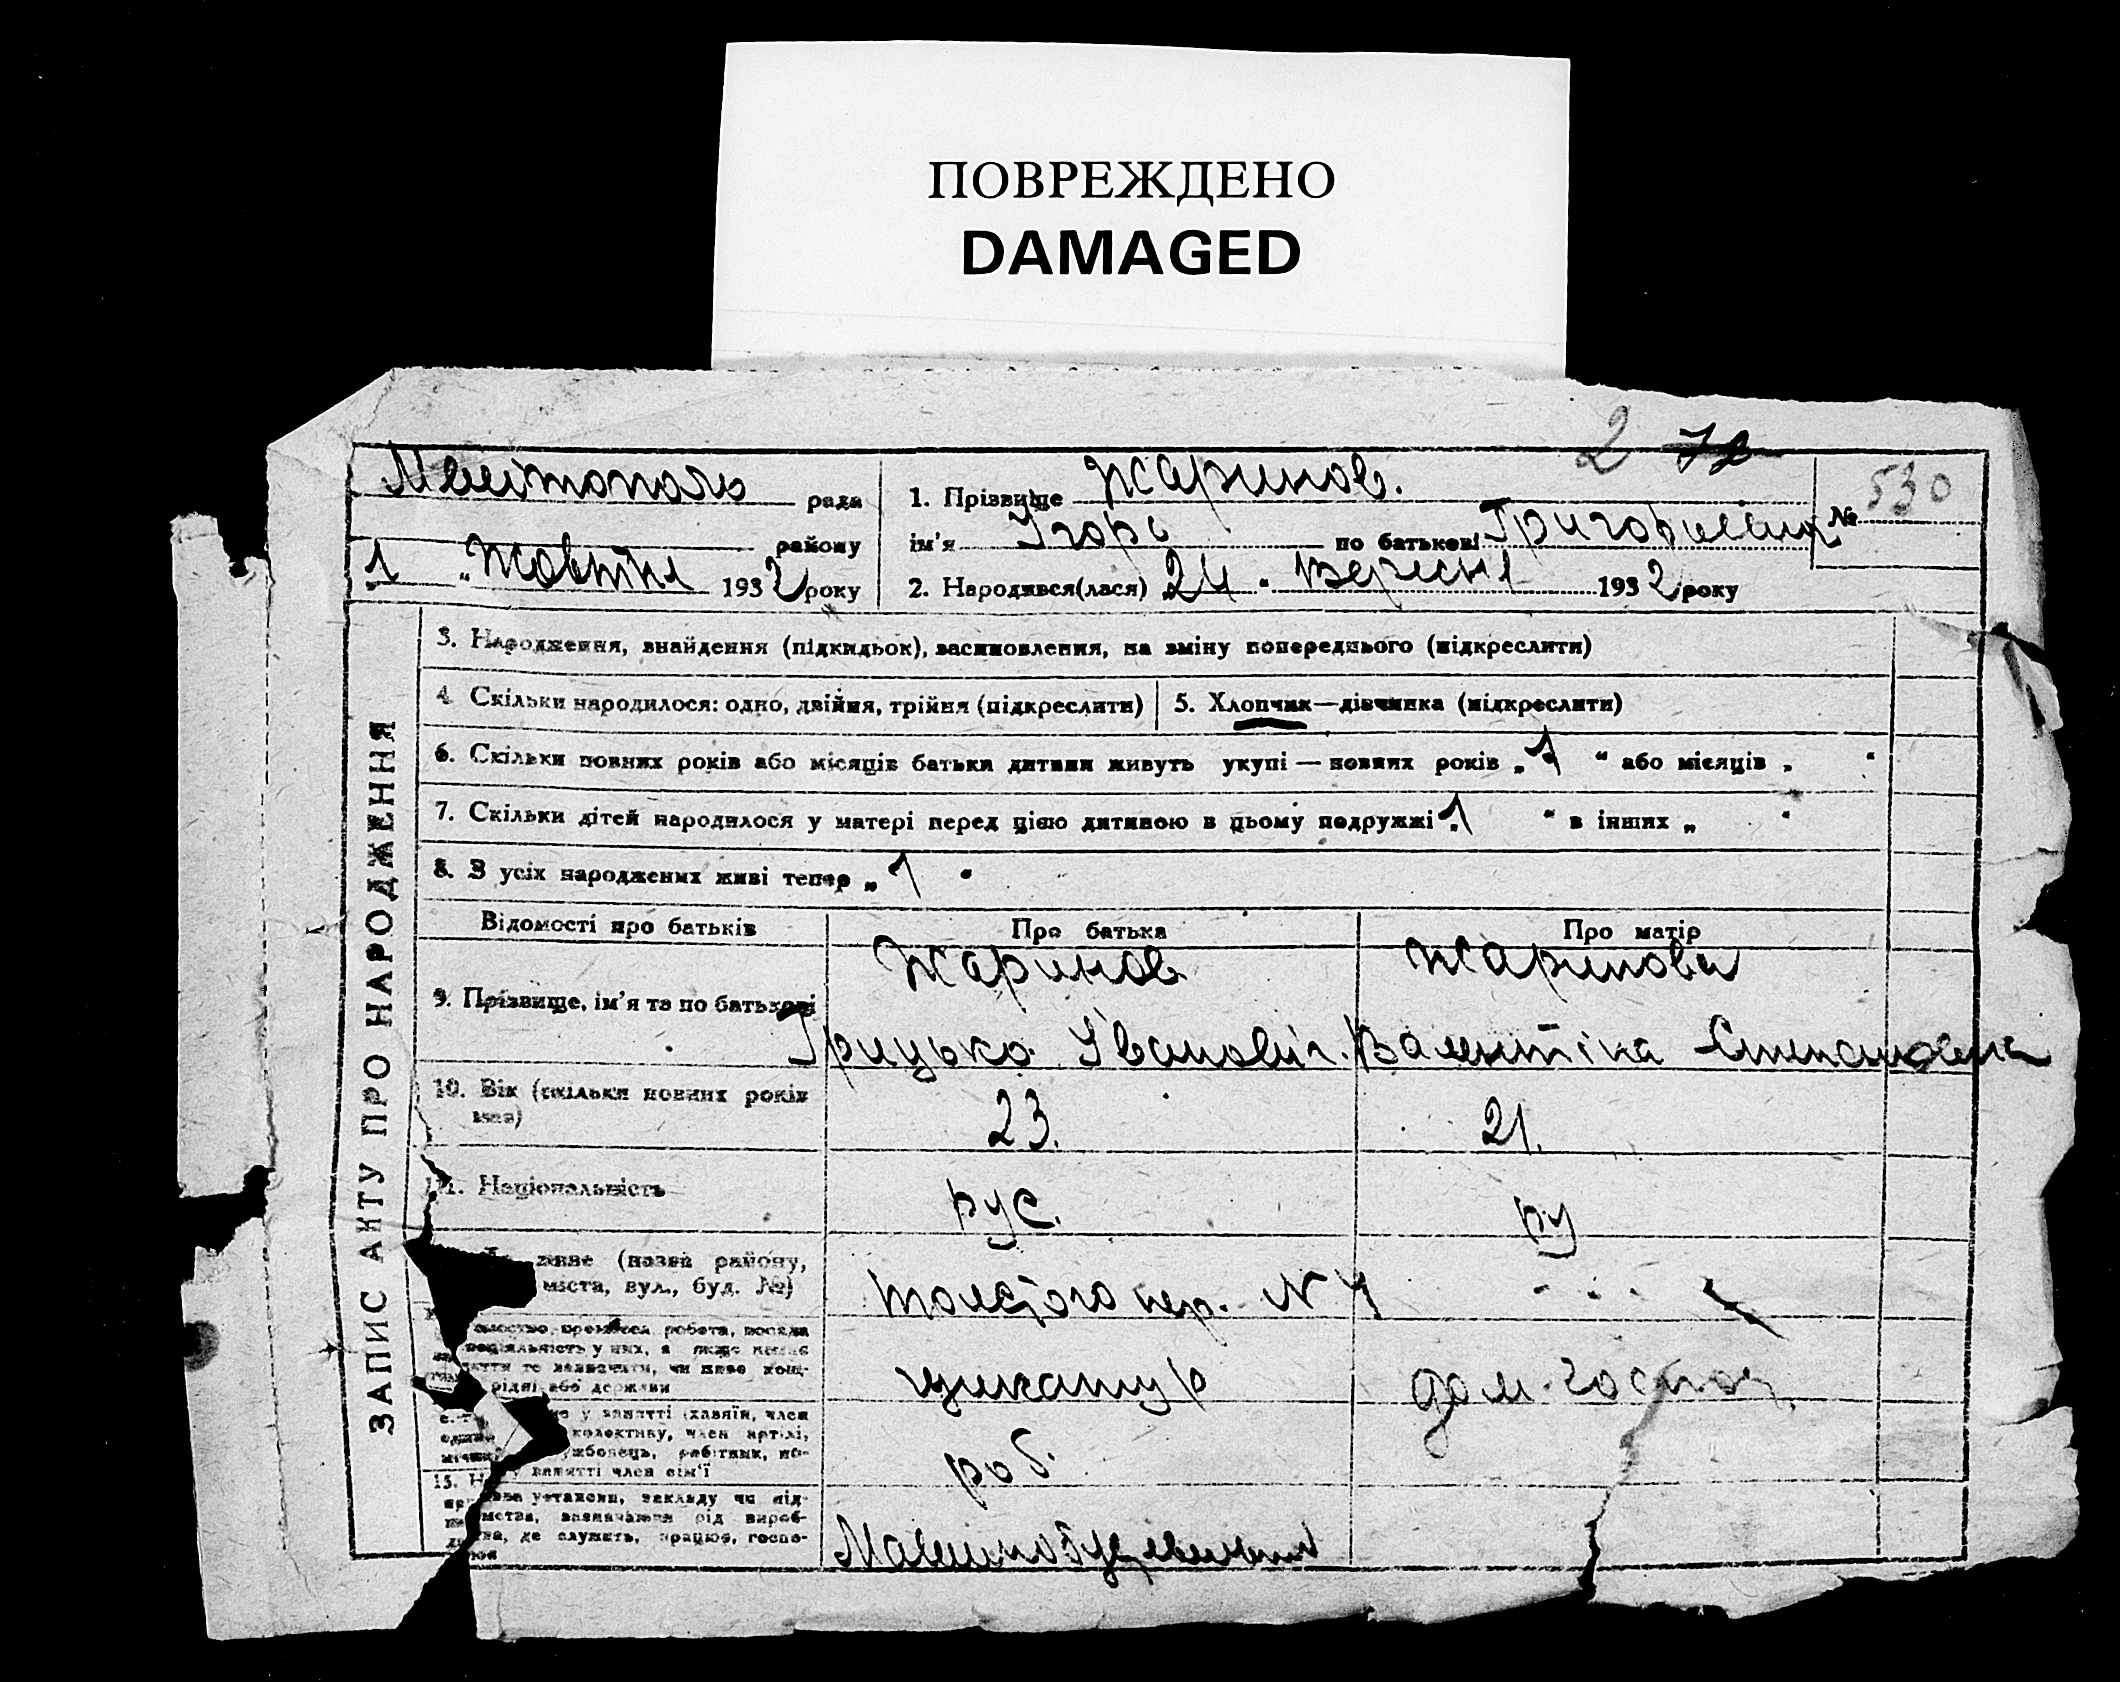 ПОВРЕЖДЕНО
DAMAGED
2 72
Мелітополь рада
1. Прізвище Жаринов.
№ 530
району
ім'я Ігорь по батькові Григорьевич
1 „ Жовтня 1932 року
2. Народився(лася) „24 “ Вересня 1932 року
ЗАПИС АКТУ ПРО НАРОДЖЕННЯ
3. Народження, знайдення (підкидьок), засиновлення, на зміну попереднього (підкреслити)
4 Скільки народилося: одно, двійня, трійня (підкреслити)
5. Хлопчик—дівчинка (підкреслити)
6. Скільки повних років або місяців батьки дитини живуть укупі — повних років „ 1 “ або місяців „ “
7. Скільки дітей народилося у матері перед цією дитиною в цьому подружжі „ 1 “ в інших „ “
8. З усіх народжених живі тепер „ 1 “
Відомості про батьків
Про батька
Про матір
9. Прізвище, ім'я та по батькові
Жаринов
Грицько Іванович.
Жаринова
Валентіна Степановна
10. Вік (скільки повних років має)
23.
21.
11. Національність
рус.
ру
живе (назва району,
міста, вул., буд. №)
Толстого пер. N
робота, посада
у них, а якщо немає
або держави
штукатур
дом. господ
у занятті (хазяїн, член
колективу, член артілі,
робітник, по-
занятті член сім'ї
роб.
15.
установи, закладу чи під-
зазначаючи рід вироб-
де служить, працює, госпо-